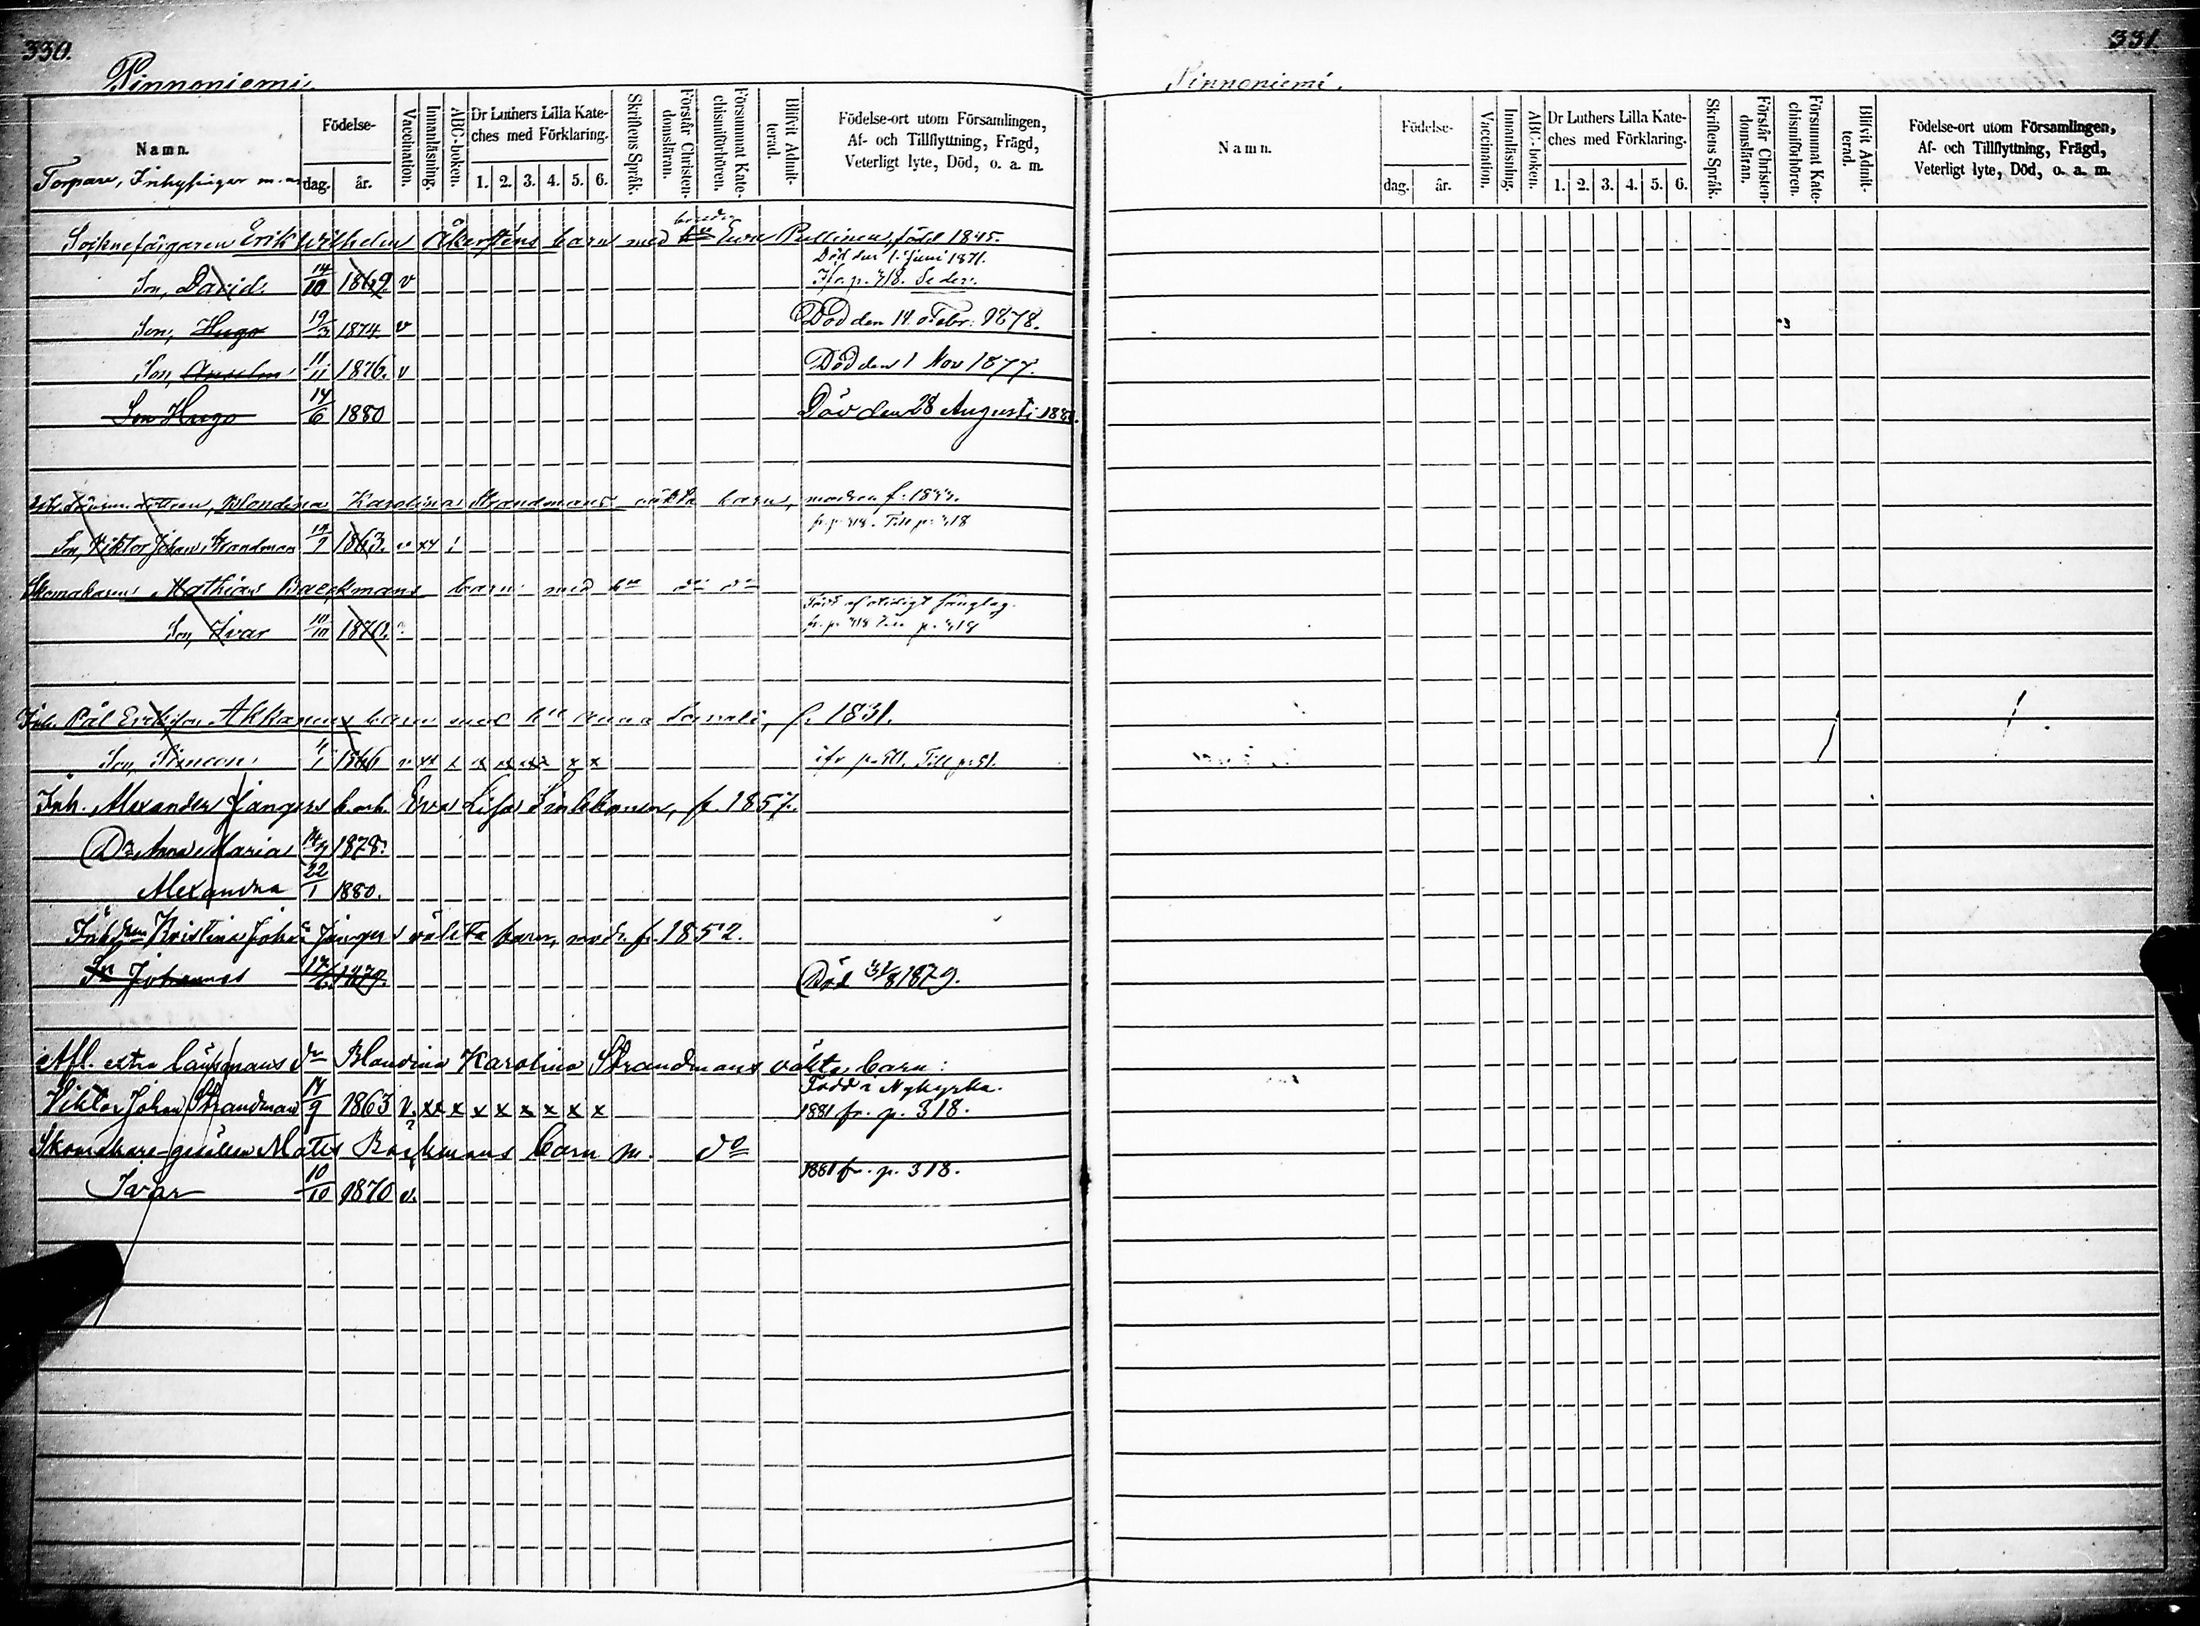 330.
Pinnoniemi
Namn.
Torpare, Inhysingar m. m.
Födelse-
dag. år.
Vaccination.
Innanläsning.
ABC-boken.
Dr Luthers Lilla Kate-
ches med Förklaring.
1. 2. 3. 4. 5. 6.
Skriftens Språk.
Förstår Christen-
domsläran.
Försummat Kate-
chismiförhören.
Blifvit Admit-
terad.
Födelse-ort utom Församlingen,
Af- och Tillflyttning, Frägd,
Veterligt lyte, Död, o. a. m.
Socknefärgaren Erik Wilhelm Åkersténs barn med hu Ewa Pullinen, född 1845.
Död den 1. Juni 1871.
Son, David. 14/10 1869. v
Son, Hugo 19/3 1874. v Död den 14. Febr: 1878.
Son, Anselm 11/11 1876. v Död den 1 Nov 1877.
Son Hugo 14/6 1880 Död den 28 Augusti 1880.
Blandina Karolina Strandmans oäkta barn, modren f. 1833.
fr. p. 318. Till p. 318
Son, Viktor Johan Strandman 17/9 1863. v xx
Skomakaren Mathias Backmans barn med
fr. p. 318 Till p. 318
Son, Ivar 10/10 1870.
Inh. Pål Eriksson Akkanens barn med hu Anna f. 1831.
Son, Simeon 1866 v xx x x x xx x x
Inh. Alexander Jangers barn Eva Lisa f. 1857.
Dr Anna Maria 14/9 1878.
Alexandra 22/1 1880.
Kristina Joh: Jangers oäkta barn, modr. f. 1852.
Sn Johannes 17/6 1879. Död 31/8 1879.
Afl. extra länsmans dr Blandina Karolina Strandmans oäkta barn:
Född i Nykyrka.
Viktor Johan Strandman 17/9 1863 v. xx x x x x x x x 1881 fr. p. 318.
Skomakare-gesällen Matts Backmans barn m. do
1881 fr. p. 318.
Ivar 10/10 1870 v.
331.
Pinnoniemi.
Namn.
Födelse-
dag. år.
Vaccination.
Innanläsning.
ABC-boken.
Dr Luthers Lilla Kate-
ches med Förklaring.
1. 2. 3. 4. 5. 6.
Skriftens Språk.
Förstår Christen-
domsläran.
Försummat Kate-
chismiförhören.
Blifvit Admit-
terad.
Födelse-ort utom Församlingen,
Af- och Tillflyttning, Frägd,
Veterligt lyte, Död, o. a. m.